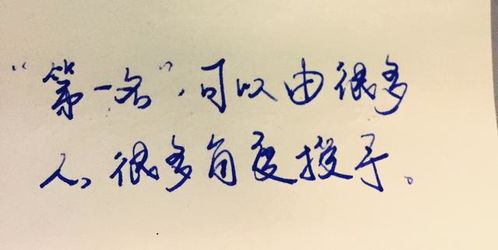 “第一名”,可以由很多
人、很多角度授予。